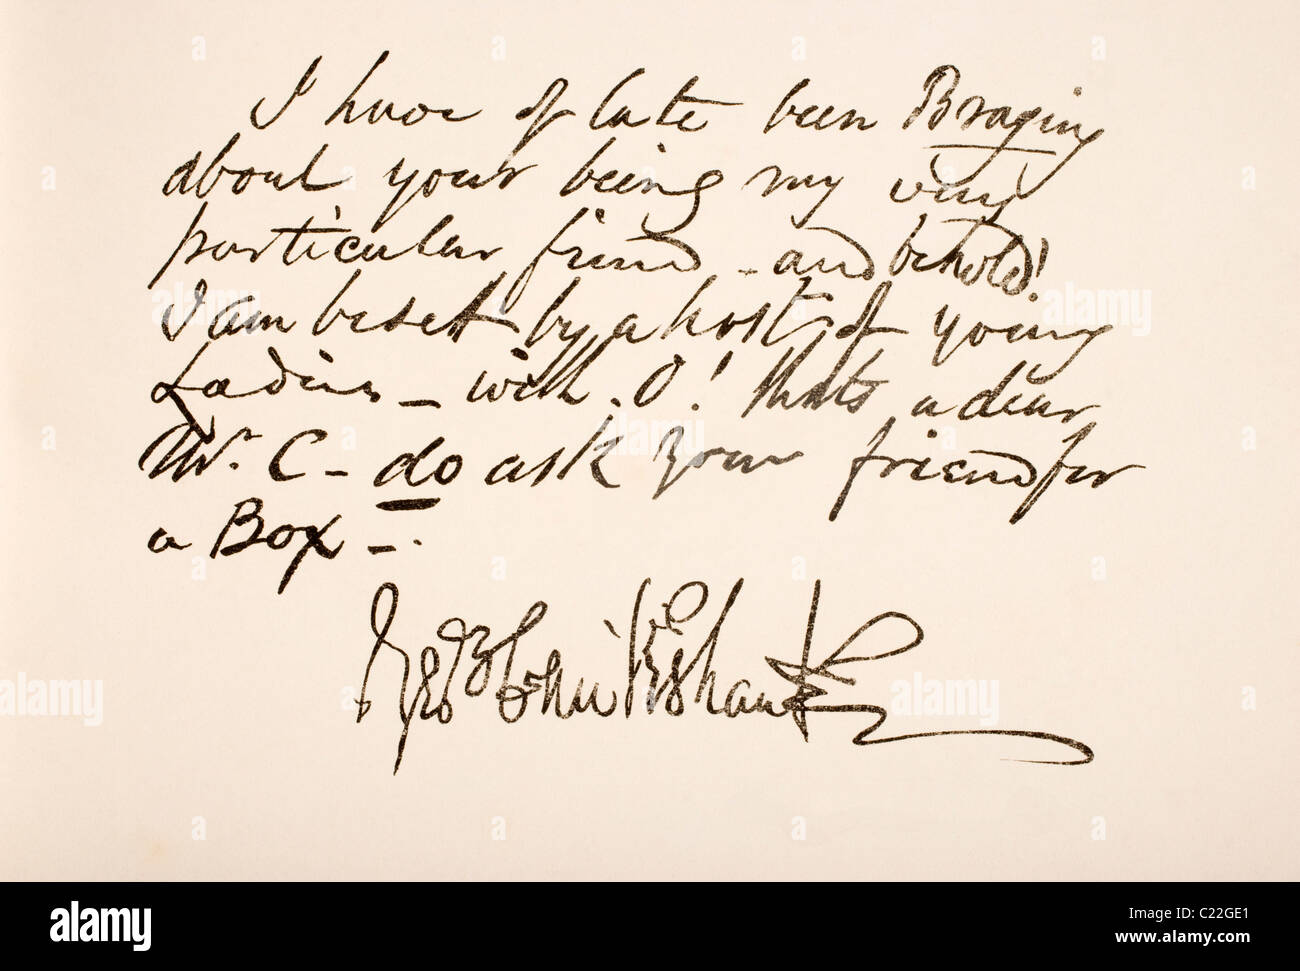 I have of late been Braging
about your being my very
particular friend - and behold!
I am beset by a host of young
Ladies - with. O! thats a dear
Mr. C - do ask your friend for
a Box -.
Geo Cruikshank
alamy
www.alamy.com
Image ID: C22GE1